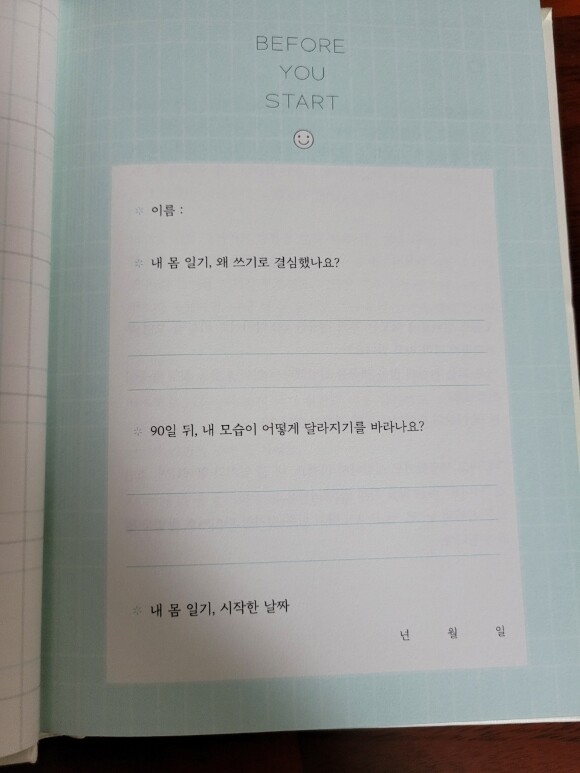 BEFORE
YOU
START
이름 :
내 몸 일기, 왜 쓰기로 결심했나요?
90일 뒤, 내 모습이 어떻게 달라지기를 바라나요?
내 몸 일기, 시작한 날짜
년 월 일